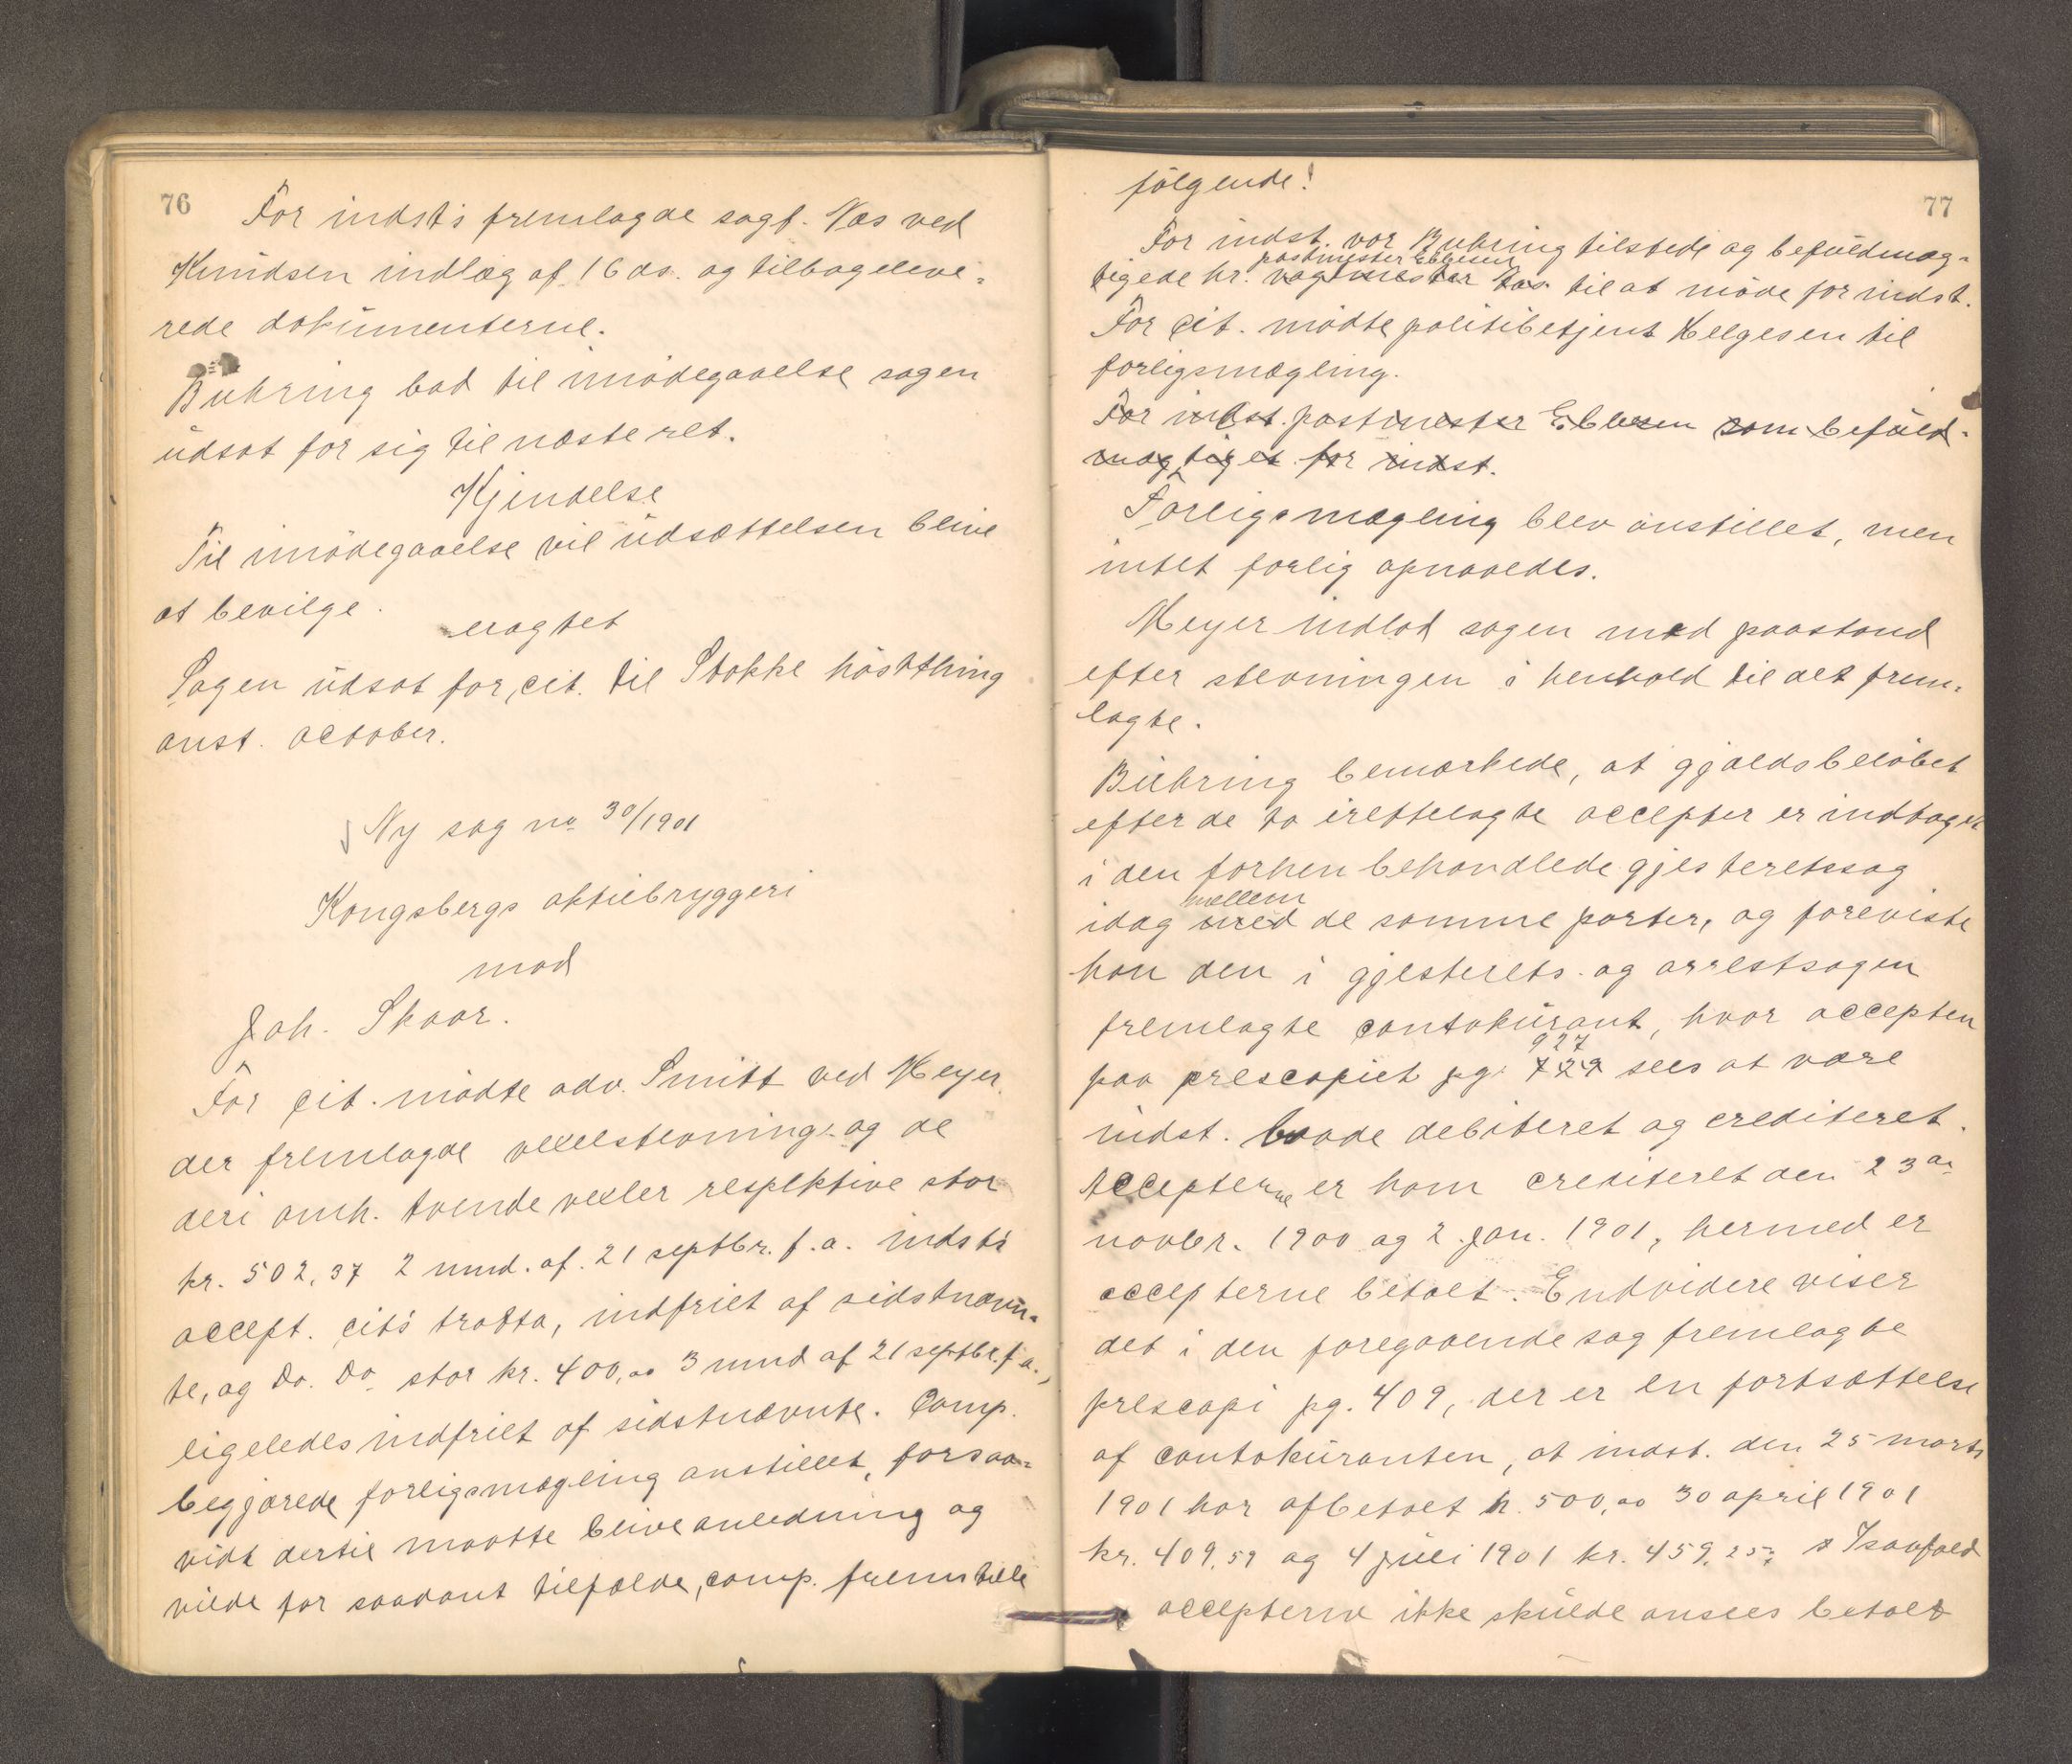 76
For indst's fremlagde sagf. Næs ved
Knudsen indlæg af 16 ds. og tilbageleve-
rede dokumenterne.
Buhring bad til imødegaaelse sagen
udsat for sig til næste ret.
Kjendelse
Til imødegaaelse vil udsættelsen blive
at bevilge.
eragtet
Sagen udsat for cit. til Stokke høstthing
anst. october.
Ny sag no 30/1901
Kongsbergs aktiebryggeri
mod
Joh. Skaar.
For cit. mødte adv. Smitt ved Meyer
der fremlagde vexelstevning og de
deri omh. tvende vexler respektive stor
kr. 502,37 2 mnd. af. 21 septbr. f.a. indsts
accept. cits tratta, indfriet af sidstnævn-
te, og Do. Do stor kr. 400,00 3 mnd af 21 septbr. f a.,
ligeledes indfriet af sidstnævnte. Comp.
begjærede forligsmægling anstillet, forsaa-
vidt dertil maatte blive anledning og
vilde for saadant tilfælde, comp. fremstille
77
følgende!
For indst. var Buhring tilstede og befuldmæg-
postmester Ebbesen
tigede hr. vagtmester Aas til at møde for indst.
For cit. mødte politibetjent Helgesen til
forligsmægling.
For indst. postmester Ebbesen som befuld-
mægtiget for indst.
Forligsmægling blev anstillet, men
intet forlig opnaaedes.
Meyer indlod sagen med paastand
efter stevningen i henhold til det frem-
lagte.
Buhring bemærkede, at gjældsbeløbet
efter de to irettelagte accepter er indtaget
i den forhen behandlede gjesteretssag
mellem
idag med de samme parter, og foreviste
han den i gjesterets- og arrestsagen
fremlagte contokurant, hvor accepten
927
paa prescopiet pg. 729 sees at være
indst. baade debiteret og crediteret.
Accepterne er ham crediteret den 23de
novbr. 1900 og 2 Jan. 1901, hermed er
accepterne betalt. Endvidere viser
det i den foregaaende sag fremlagte
prescopi pg. 409, der er en fortsættelse
af contokuranten, at indst. den 25 marts
1901 har afbetalt kr. 500,00 30 april 1901
kr. 409,59 og 4 juli 1901 kr. 459,25. I saafald
accepterne ikke skulde ansees betalt